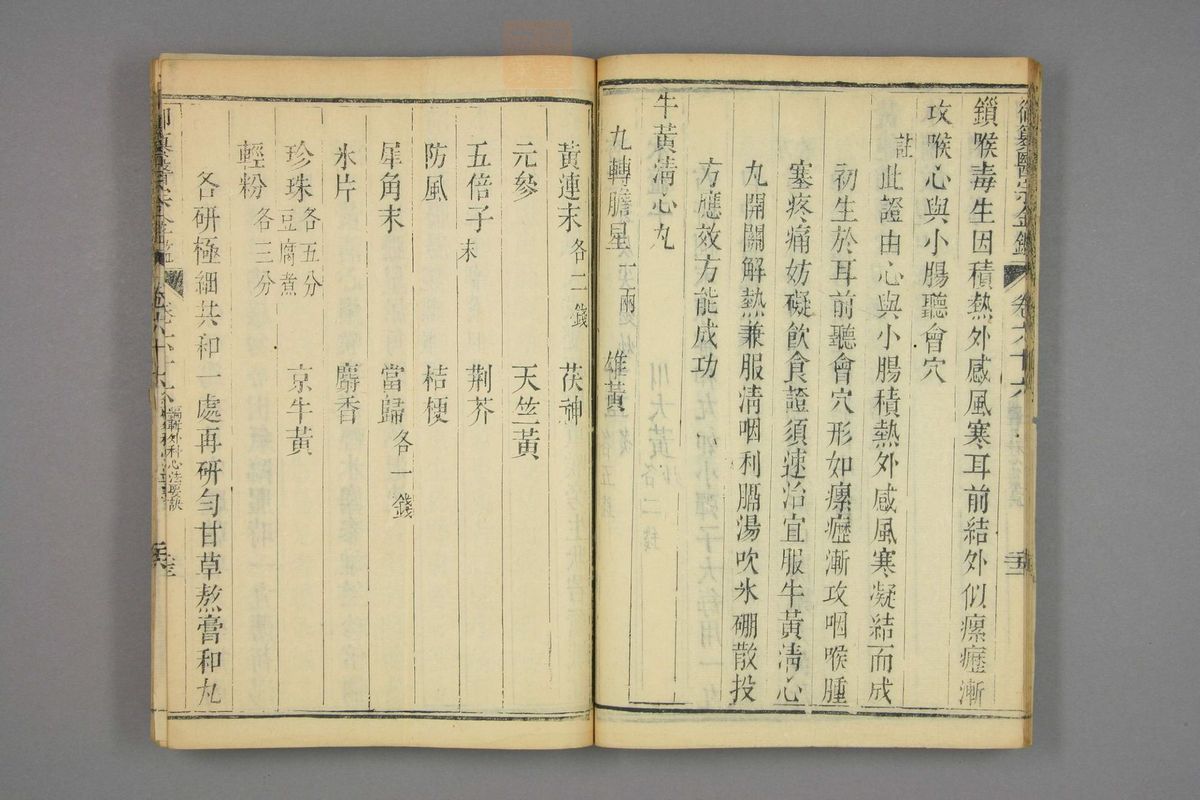 御纂醫宗金鑑 卷六十六
鎖喉毒生因積熱外感風寒耳前結外似瘰癧漸
攻喉心與小腸聽會穴
註
此證由心與小腸積熱外感風寒凝結而成
初生於耳前聽會穴形如瘰癧漸攻咽喉腫
塞疼痛妨礙飲食證須速治宜服牛黃清心
丸開關解熱兼服清咽利膈湯吹氷硼散投
方應效方能成功
牛黃清心丸
九轉膽星一兩 雄黃
黃連末各二錢 茯神
元參 天竺黃
五倍子末 荆芥
防風 桔梗
犀角末 當歸各一錢
氷片 麝香
珍珠各五分豆腐煮 京牛黃
輕粉各三分
各研極細共和一處再研勻甘草熬膏和丸
御纂醫宗金鑑 卷六十六 編輯外科心法要訣